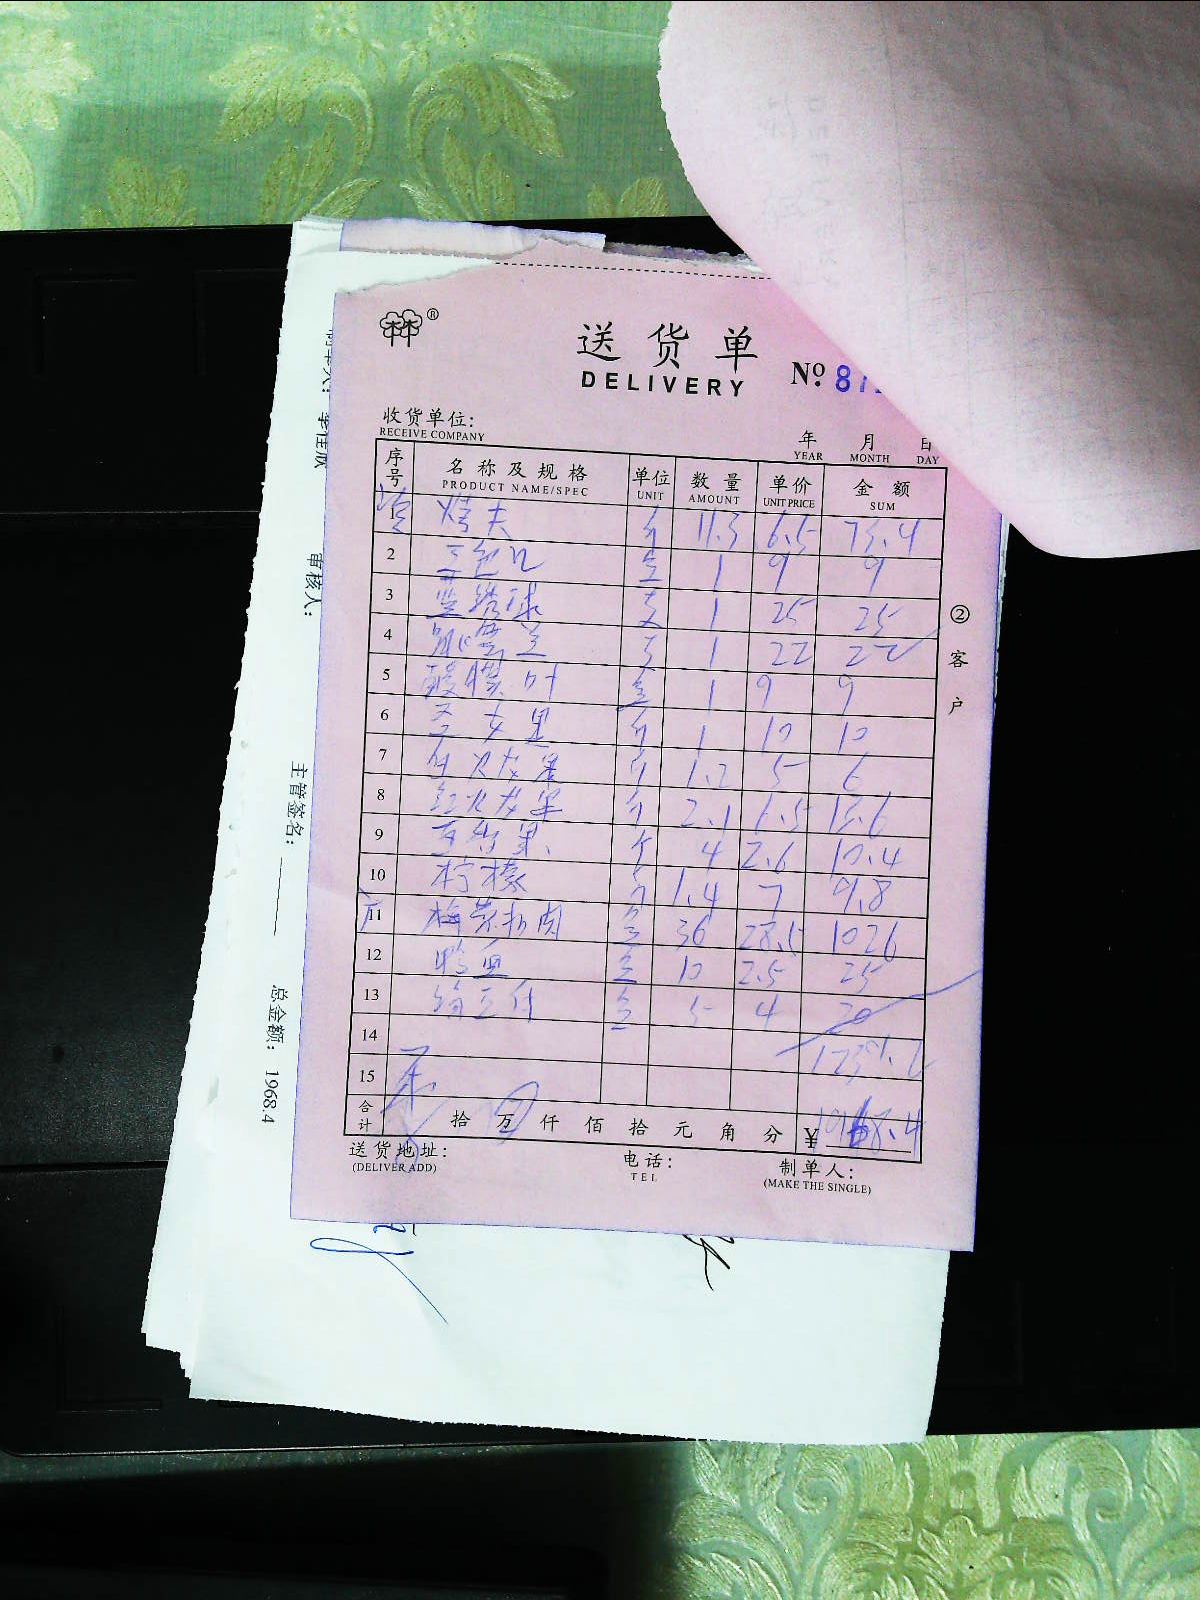 ®
送货单
DELIVERY
Nº 87
收货单位:
RECEIVE COMPANY
年 月 日
YEAR MONTH DAY
序号 名称及规格 单位 数量 单价 金额
PRODUCT NAME/SPEC UNIT AMOUNT UNIT PRICE SUM
1 11.3 6.5 73.4
2 1 9 9
3 蓝绣球 支 1 25 25
4 1 22 22
5 酸膜叶 盒 1 9 9
6 圣女果 斤 1 10 10
7 白火龙果 斤 1.2 5 6
8 红火龙果 斤 2.1 6.5 13.6
9 百香果 个 4 2.6 10.4
10 柠檬 斤 1.4 7 9.8
11 梅菜扣肉 盒 36 28.5 1026
12 10 2.5 25
13 5 4 20
14
15
合计 拾 万 仟 佰 拾 元 角 分 ¥ 1968.4
送货地址:
(DELIVER ADD)
电话:
TEL
制单人:
(MAKE THE SINGLE)
②客户
审核人:
主管签名:
总金额: 1968.4